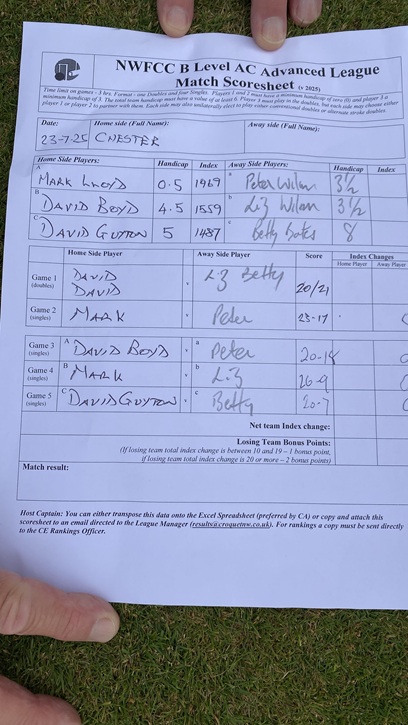 NWFCC B Level AC Advanced League
Match Scoresheet (v 2025)
Time limit on games - 3 hrs. Format - one Doubles and four Singles. Players 1 and 2 must have a minimum handicap of zero (0) and player 3 a
minimum handicap of 3. The total team handicap must have a value of at least 6. Player 3 must play in the doubles, but each side may choose either
player 1 or player 2 to partner with them. Each side may also unilaterally elect to play either conventional doubles or alternate stroke doubles
Date: Home side (Full Name): Away side (Full Name):
23-7-25 CHESTER
Home Side Players: Handicap Index Away Side Players: Handicap Index
A MARK LLOYD 0.5 1969 a Peter Wilson 3½
B DAVID BOYD 4.5 1559 b Liz Wilson 3½
C DAVID GUYTON 5 1487 c Betty Bates 8
Home Side Player Away Side Player Score Index Changes
Home Player Away Player
Game 1 (doubles) DAVID DAVID v Liz Betty 20/21
Game 2 (singles) MARK v Peter 17
Game 3 (singles) A DAVID BOYD v a Peter 20-18
Game 4 (singles) B MARK v b Liz 26-9
Game 5 (singles) C DAVID GUYTON v c Betty 20-7
Net team Index change:
Losing Team Bonus Points:
(If losing team total index change is between 10 and 19 – 1 bonus point,
if losing team total index change is 20 or more – 2 bonus points)
Match result:
Host Captain: You can either transpose this data onto the Excel Spreadsheet (preferred by CA) or copy and attach this
scoresheet to an email directed to the League Manager (results@croquetnw.co.uk). For rankings a copy must be sent directly
to the CE Rankings Officer.